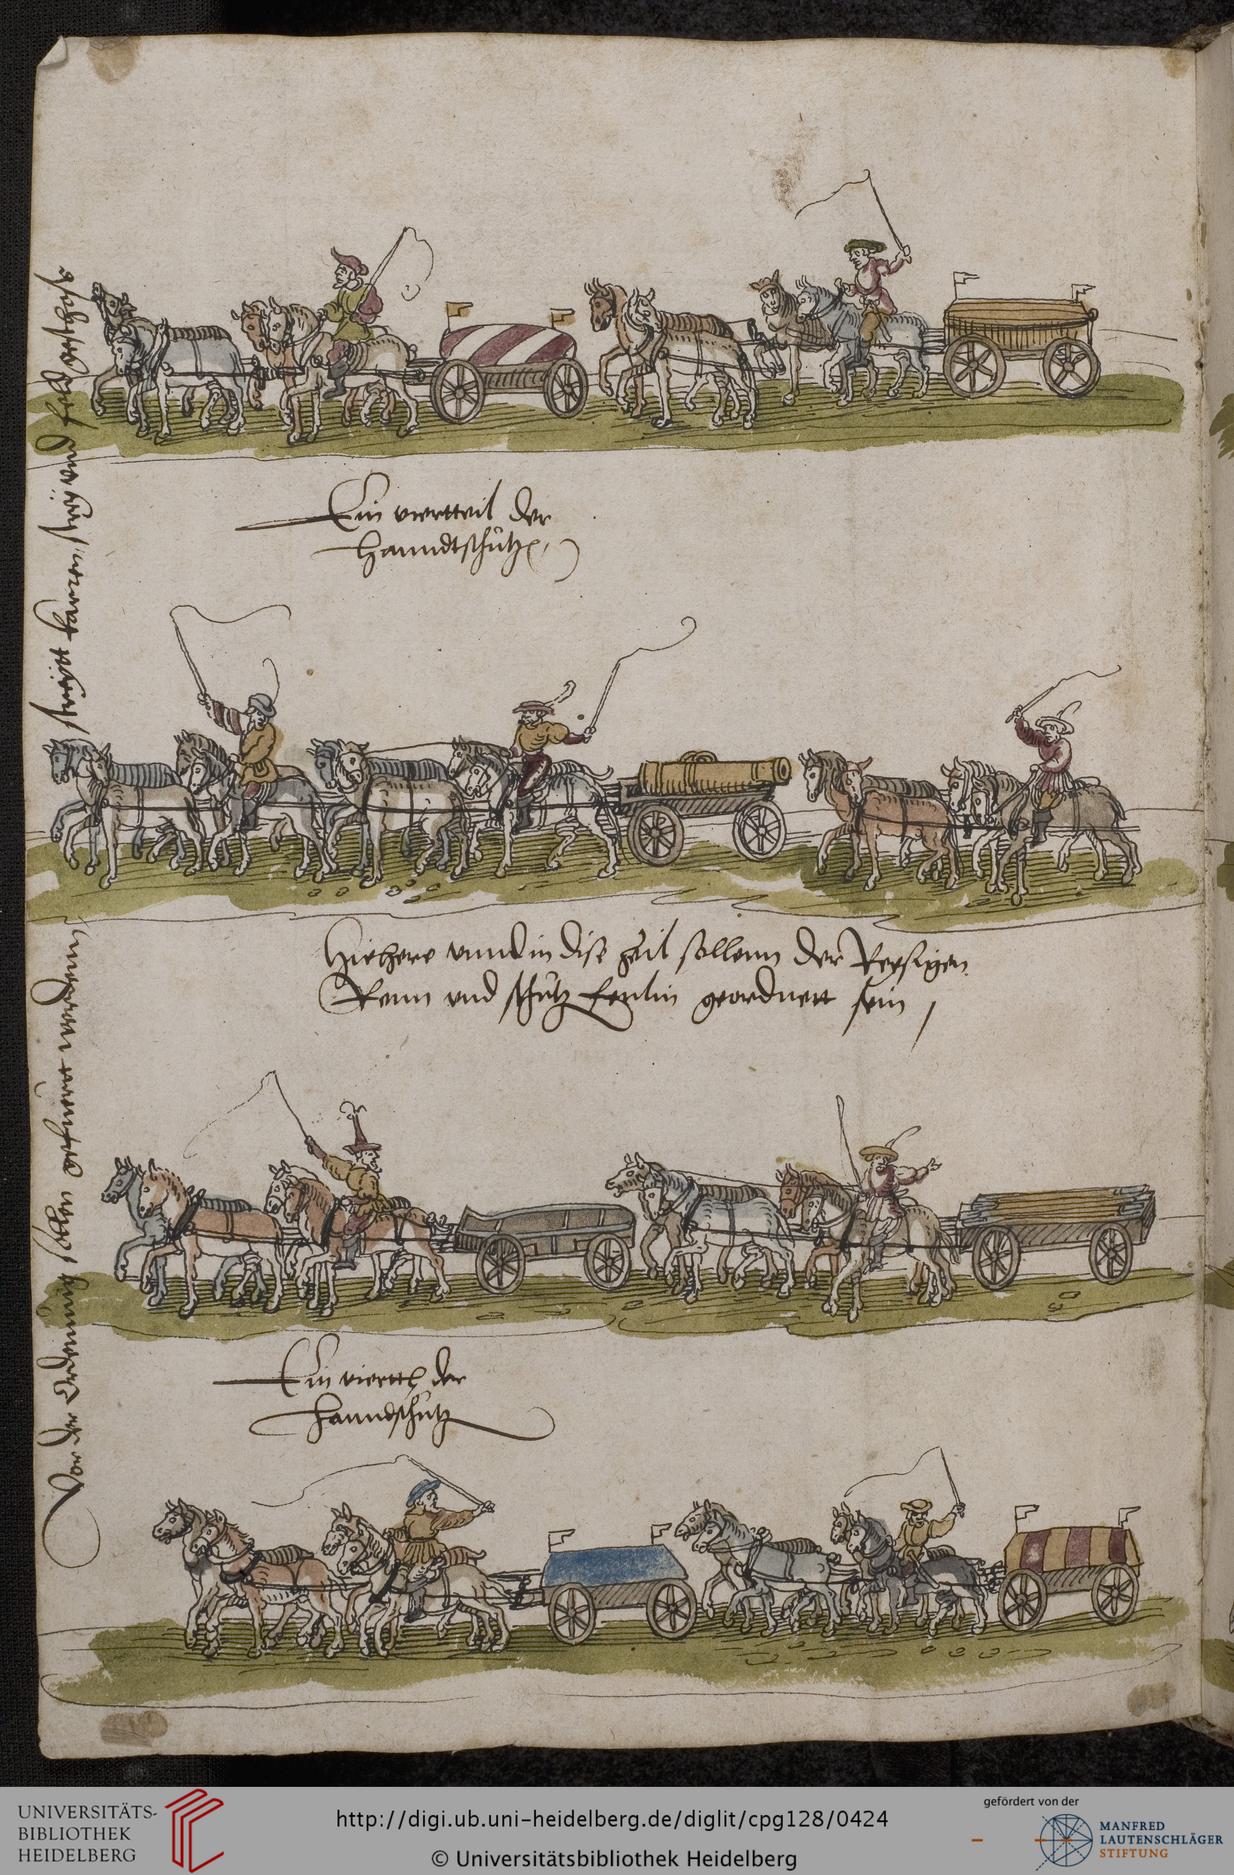 Vor der Ordennung sollen gefuertt werdenn
streytt karren, stey vnd
Ein viertteil der
Hanndtschutz
Hiehere vnnd in dise zeil sollenn der Reysigen
Renn vnd schutz fenlin geordnett sein
Ein viertt der
hanndschutz
UNIVERSITÄTS-
BIBLIOTHEK
HEIDELBERG
http://digi.ub.uni-heidelberg.de/diglit/cpg128/0424
© Universitätsbibliothek Heidelberg
gefördert von der
MANFRED
LAUTENSCHLÄGER
STIFTUNG